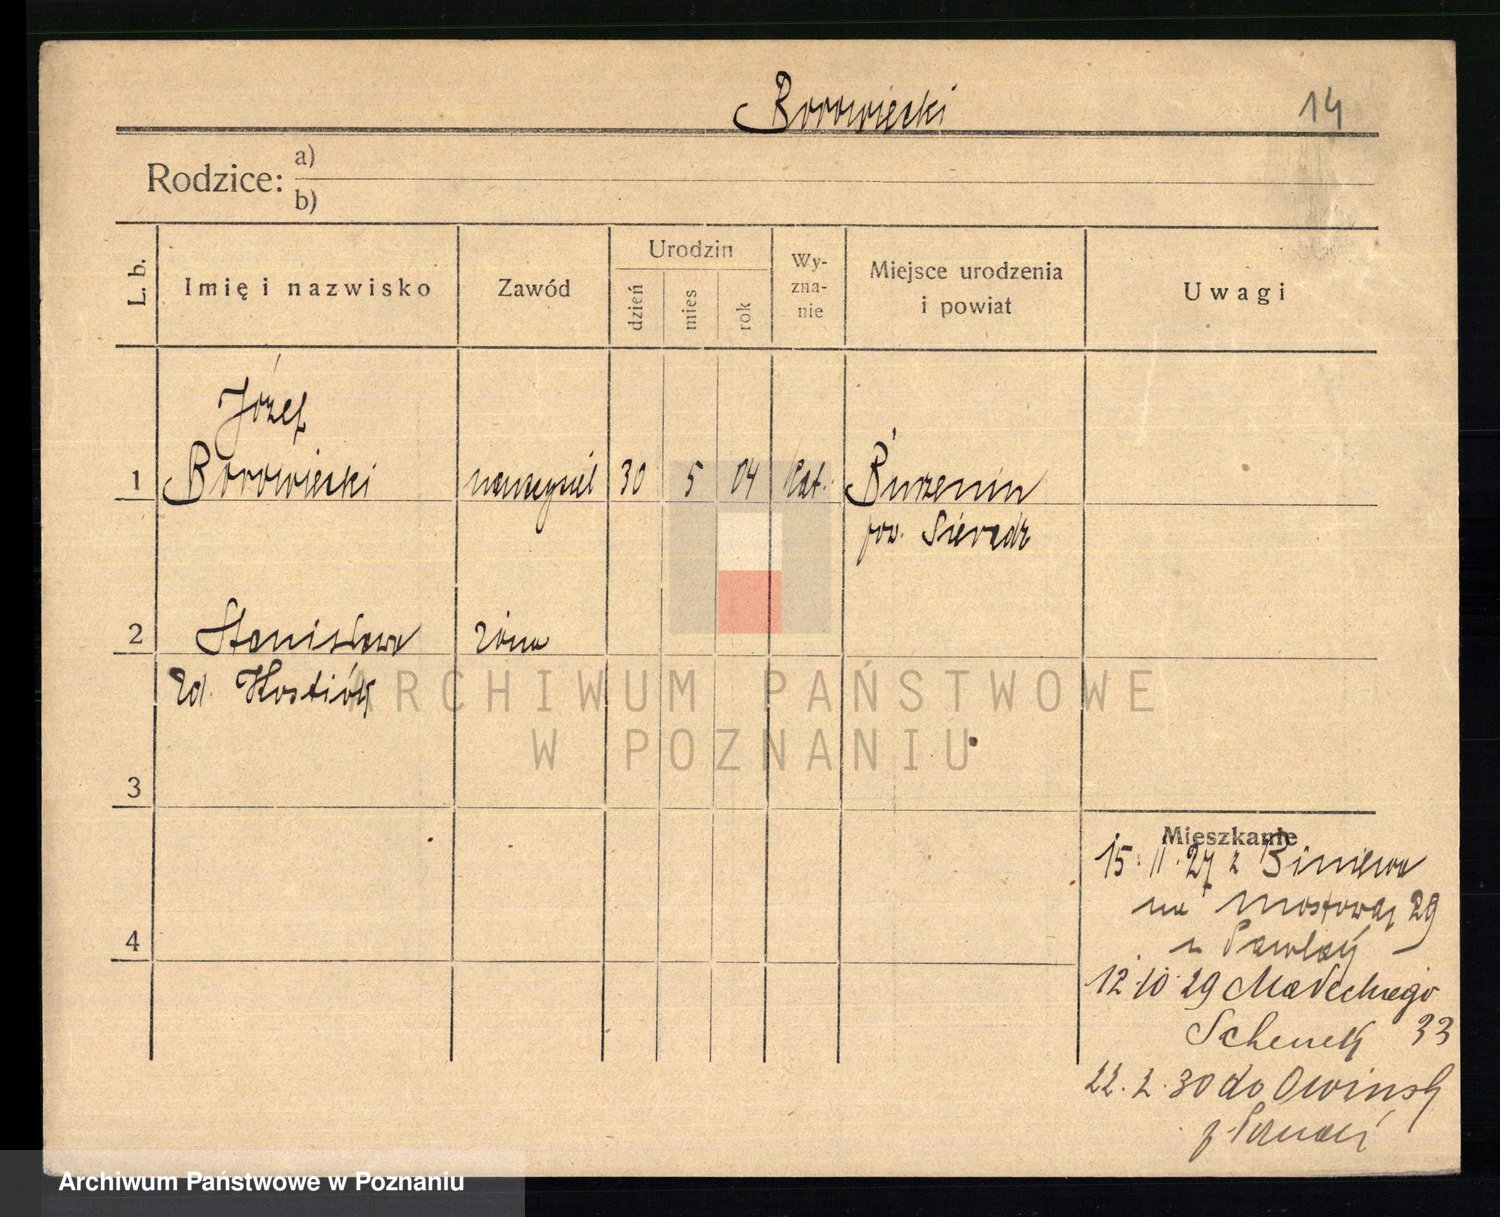 Borowiecki
14
Rodzice:
a)
b)
L. b.
Imię i nazwisko
Zawód
Urodzin
dzień
mies
rok
Wy-
zna-
nie
Miejsce urodzenia
i powiat
Uwagi
Józef
1 Borowiecki nauczyciel 30 5 04 kat. Burzenin
pow. Sieradz
2 Stanisława żona
zd.
3
4
Mieszkanie
15. 11. 27 z Biniewa
na Mostowej 29
12. 10. 29 Małeckiego
Schenek 33
22. 2. 30 do Owińsk
ARCHIWUM PAŃSTWOWE
W POZNANIU
Archiwum Państwowe w Poznaniu